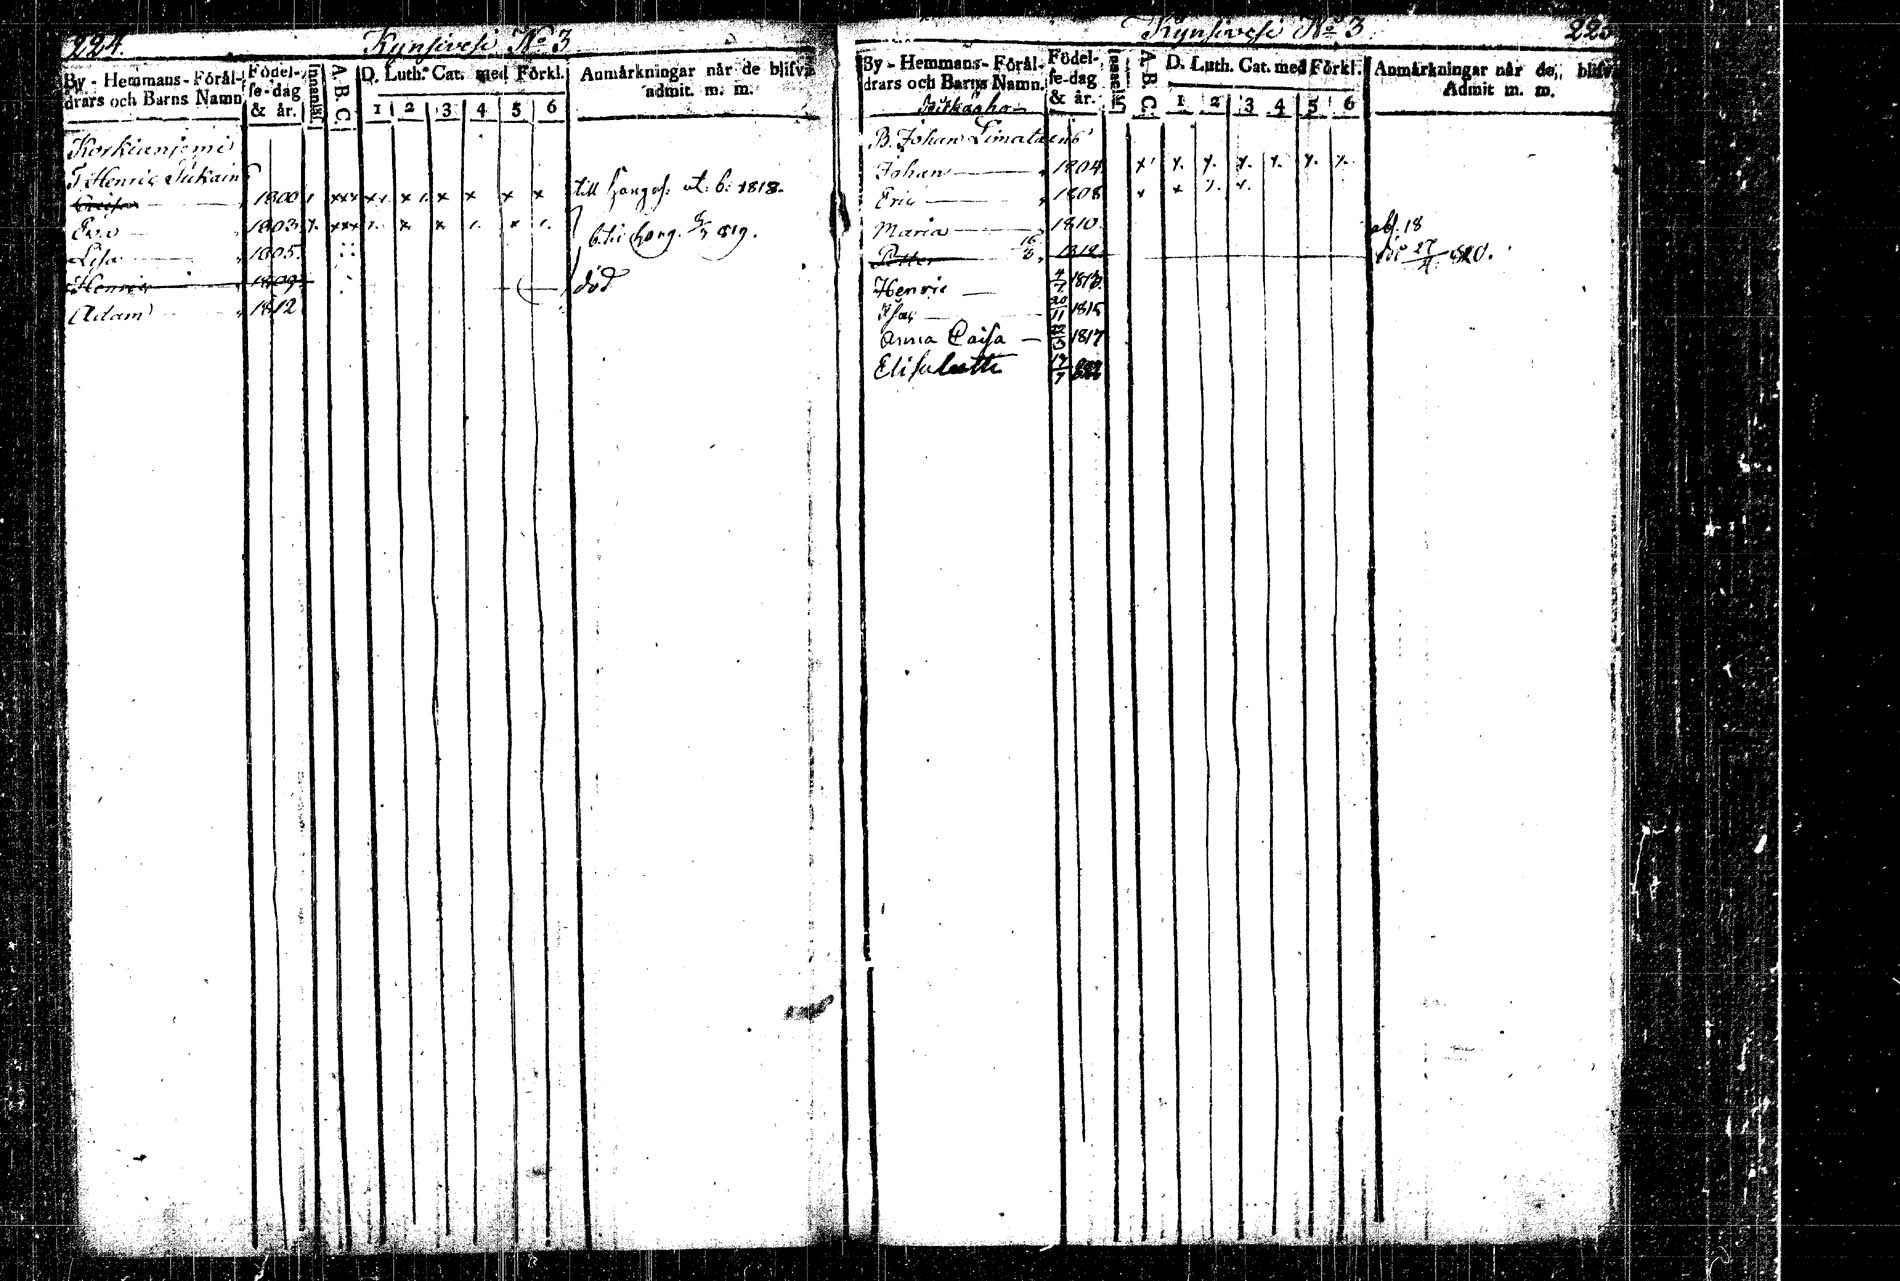 224.
Kynsivesi No 3
By - Hemmans - Föräl-
drars och Barns Namn
Födel-
se-dag
& år.
Innanläs.
A. B. C.
D. Luth. Cat. med Förkl.
1 2 3 4 5 6
Anmärkningar når de blifva
admit. m. m.
Korkianiemi
T. Henric
1800 1 xxx x x x x x x till Hangas: at: b: 1818.
Eva 1803 x xxx x x
b. til Hang. 1819.
Lisa 1805.
Henric 1809 död
Adam 1812
Kynsivesi No 3
225
By - Hemmans - Föräl-
drars och Barns Namn.
Födel-
se-dag
& år.
Innanläs.
A. B. C.
D. Luth. Cat. med Förkl.
1 2 3 4 5 6
Anmärkningar når de blifva
Admit m. m.
B. Johan Limatains
Johan 1804. x x x x x x x
Eric 1808 x x x x
Maria 1810 abs. 18
Petter 16/3 1812 död 27/4 1820.
Henric 4/7 1813
Isac 20/11 1815
Anna Caisa 1817
Elisabeth 19/7